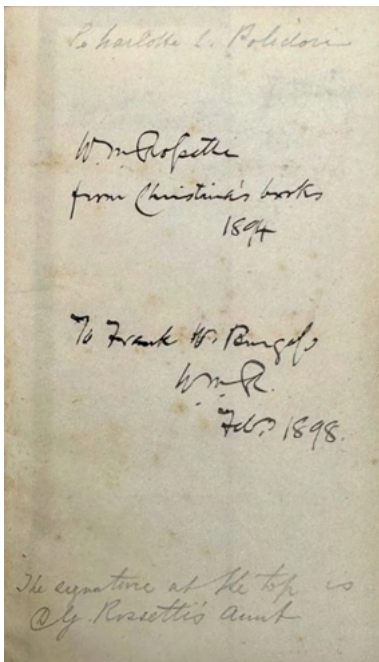 Charlotte L. Polidori
W. M. Rossetti
from Christina's books
1894
To Frank W. Burgess
W. M. R.
Feb. 1898.
The signature at the top is
D. G. Rossetti's Aunt